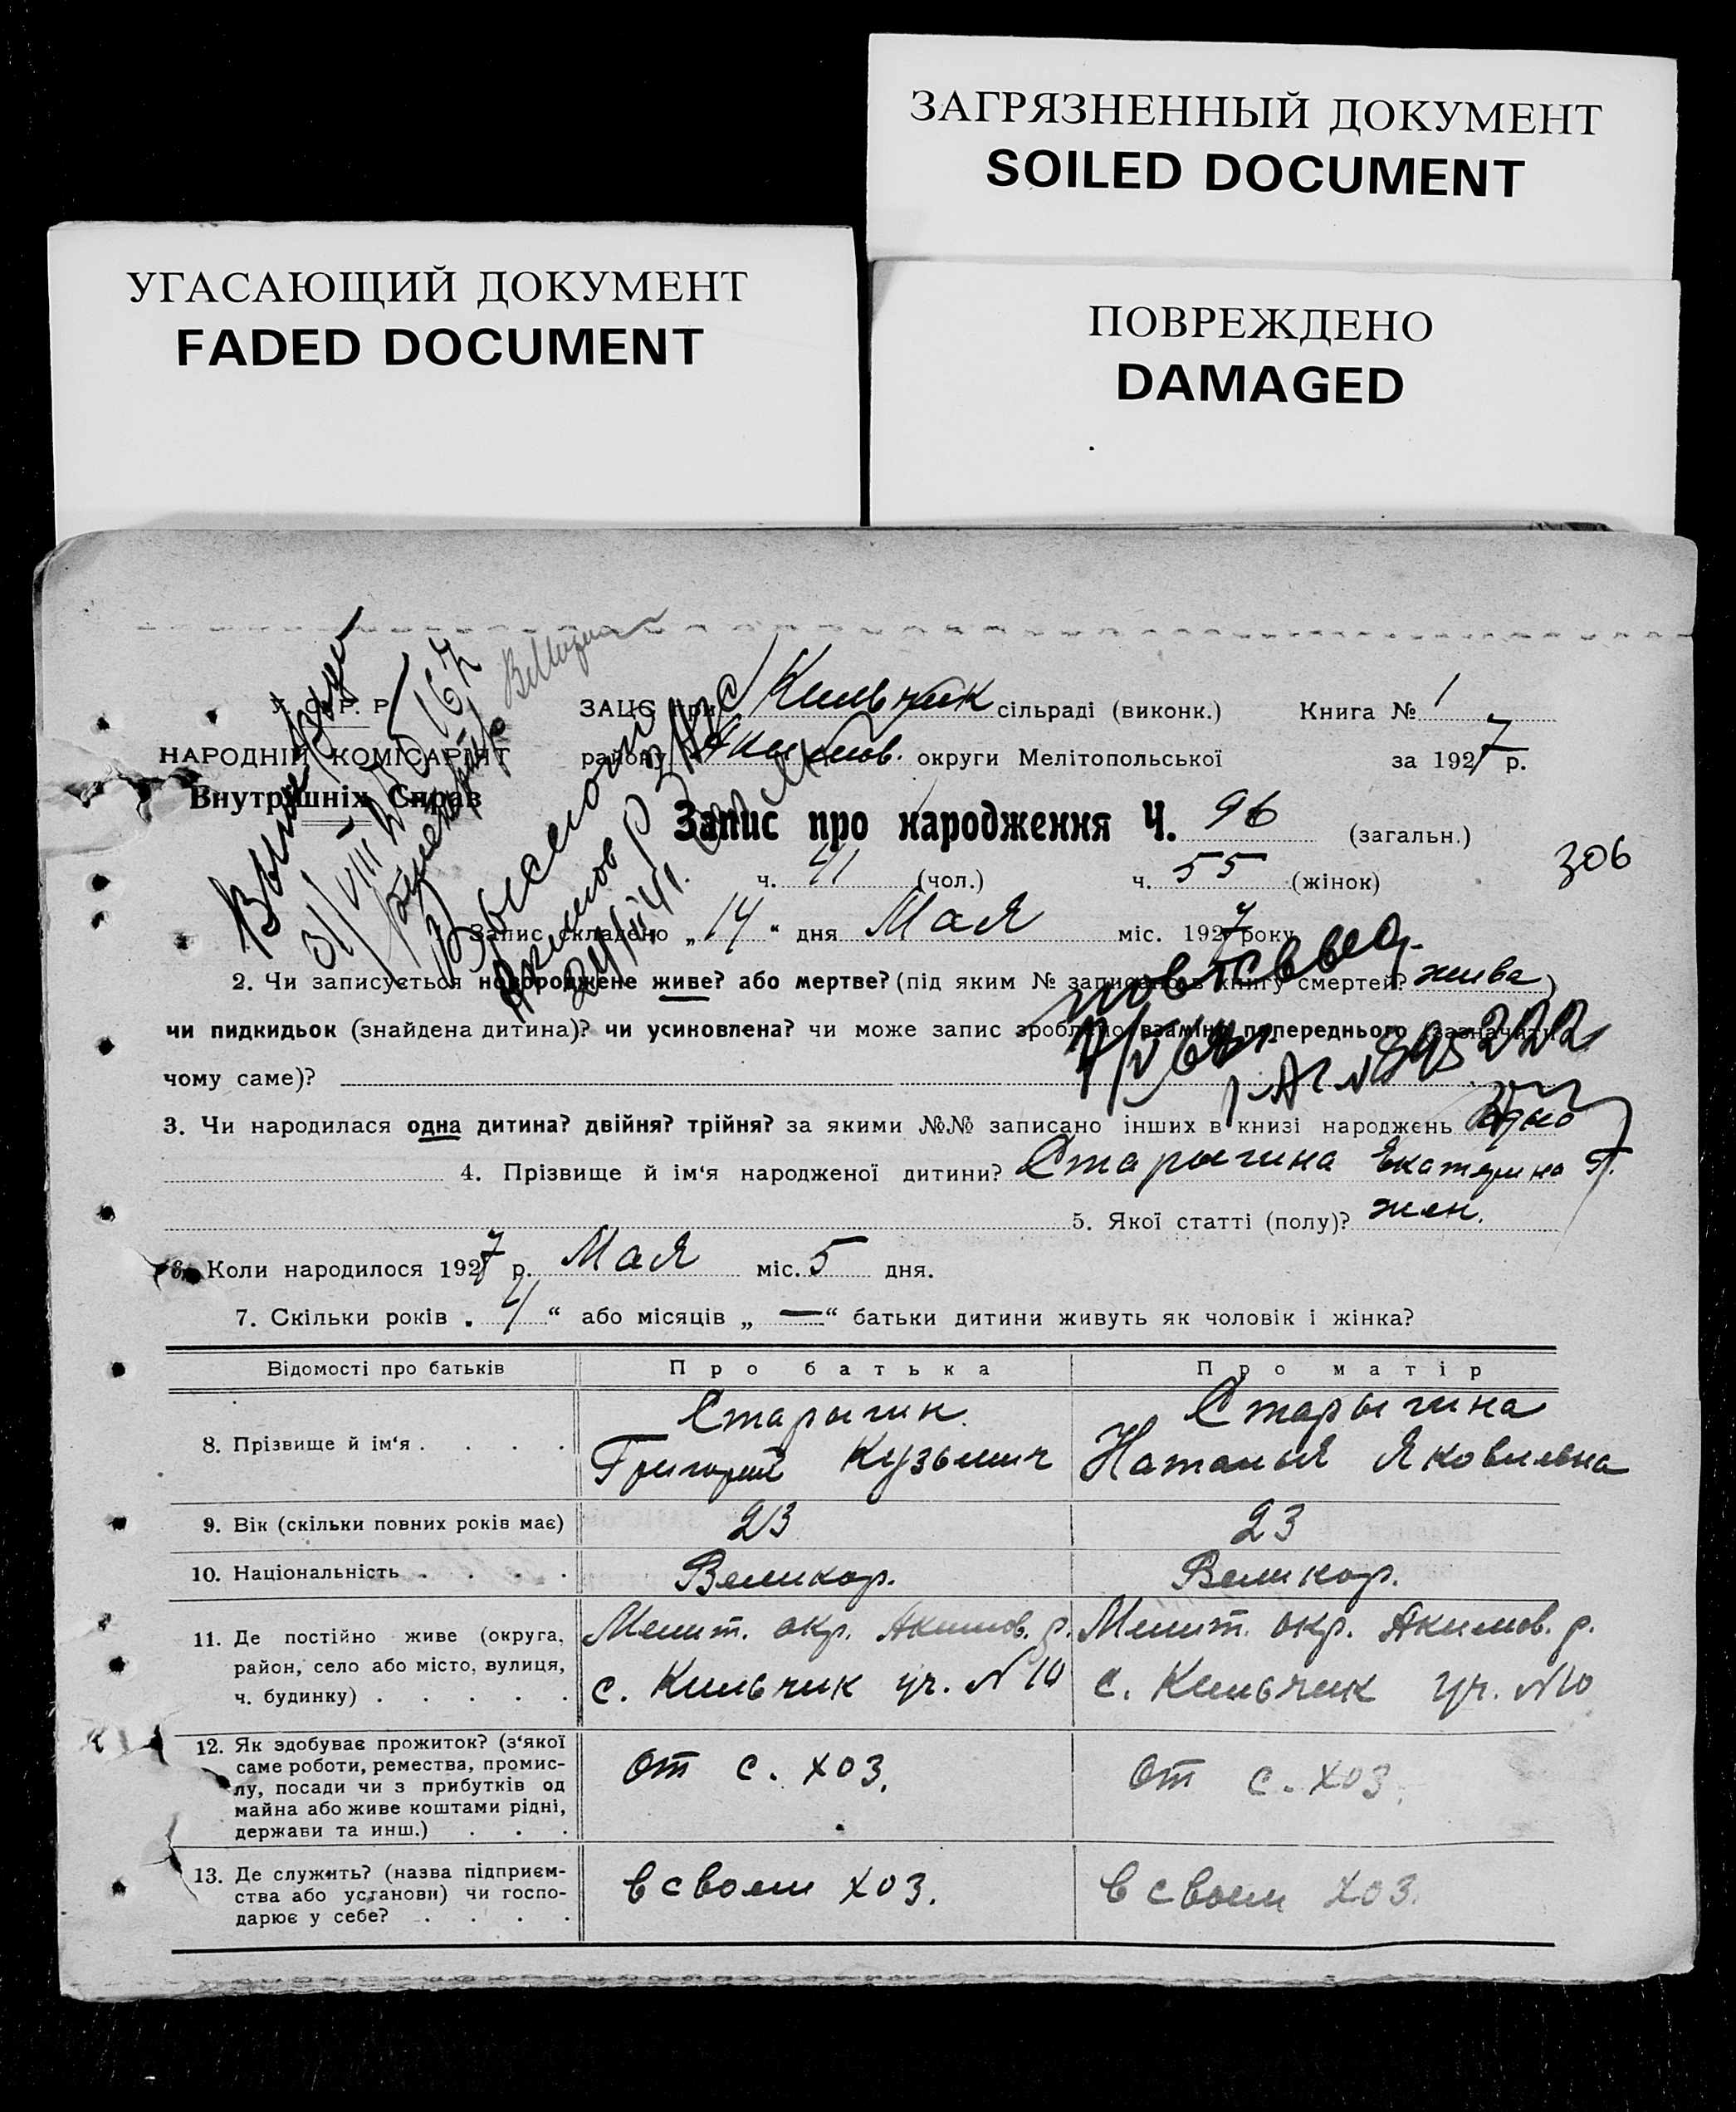 ЗАГРЯЗНЕННЫЙ ДОКУМЕНТ
SOILED DOCUMENT
УГАСАЮЩИЙ ДОКУМЕНТ
FADED DOCUMENT
ПОВРЕЖДЕНО
DAMAGED
У. С. Р. Р.
НАРОДНІЙ КОМІСАРІЯТ
Внутрішніх Справ
ЗАЦС при Кильчик сільраді (виконк.) Книга № 1
району Акимов. округи Мелітопольської за 1927 р.
Запис про народження Ч. 96 (загальн.)
306
ч. 41 (чол.) ч. 55 (жінок)
Запис складено „14“ дня Мая міс. 1927 року
2. Чи записується новороджене живе? або мертве? (під яким № записано в книгу смертей? жива)
чи пидкидьок (знайдена дитина)? чи усиновлена? чи може запис зроблено взамін попереднього (зазначити
чому саме)?
3. Чи народилася одна дитина? двійня? трійня? за якими №№ записано інших в книзі народжень одно
4. Прізвище й ім‘я народженої дитини? Старыгина Екатерина Г.
5. Якої статті (полу)? жен.
6. Коли народилося 1927 р. Мая міс. 5 дня.
7. Скільки років „4“ або місяців „—“ батьки дитини живуть як чоловік і жінка?
Відомості про батьків Про батька Про матір
8. Прізвище й ім‘я . . . . Старыгин Григорий Кузьмич Старыгина Наталья Яковлевна
9. Вік (скільки повних років має) 23 23
10. Національність . . . . Великор. Великор.
11. Де постійно живе (округа, Мелит. окр. Акимов. р. Мелит. окр. Акимов. р.
район, село або місто, вулиця, с. Кильчик уч. N 10 с. Кильчик уч. N 10
ч. будинку) . . . . .
12. Як здобуває прожиток? (з‘якої
саме роботи, ремества, промис- от с. хоз. от с. хоз.
лу, посади чи з прибутків од
майна або живе коштами рідні,
держави та инш.) . . .
13. Де служить? (назва підприєм-
ства або установи) чи госпо- в своем хоз. в своем хоз.
дарює у себе? . . . .